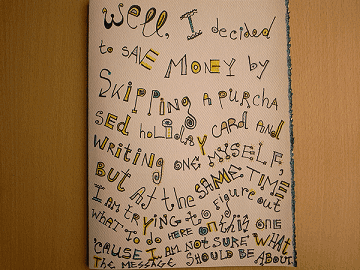 Well, I decided
to SAVE MONEY by
SKIPPING A PURCHA
SED HOLIDAY CARD AND
WRITING ONE MYSELF,
BUT At the SAME TIME
I AM TRYING to figure out
WHAT TO DO HERE ON this ONE
'CAUSE I AM NOT SURE WHAT
THE MESSAGE SHOULD BE ABOUT.